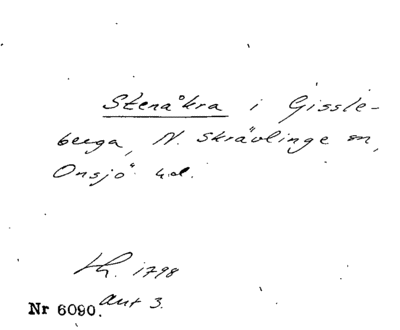 Stenåkra i Gissle-
berga, N. Skrävlinge sn,
Onsjö hd.
Lh. 1798
akt 3.
Nr 6090.